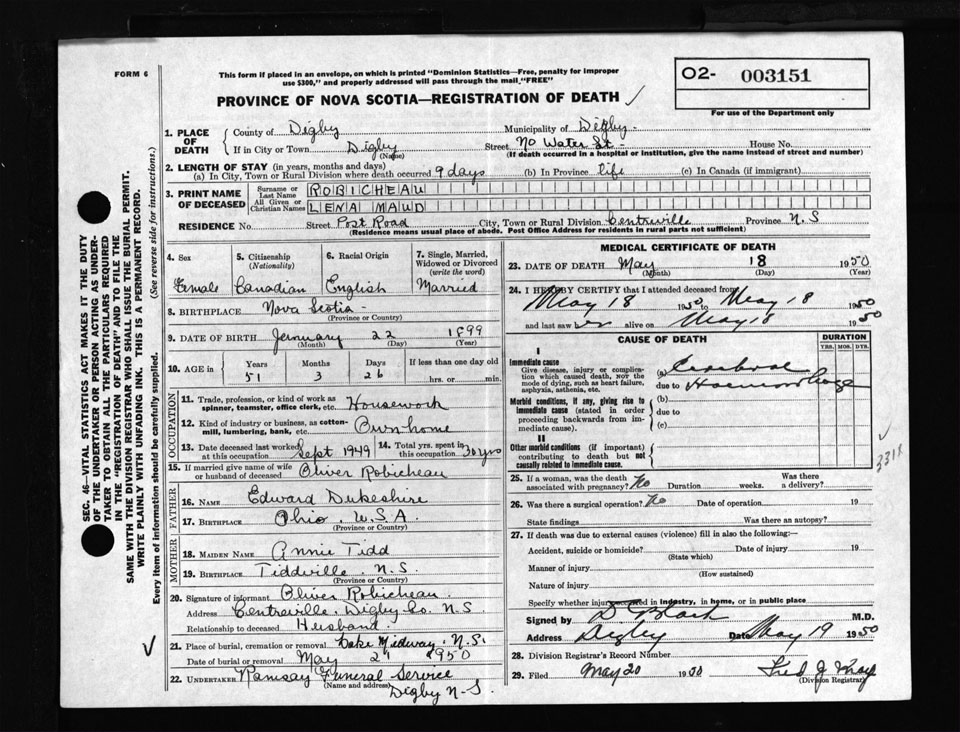 FORM 6
This form if placed in an envelope, on which is printed "Dominion Statistics—Free, penalty for improper
use $300," and properly addressed will pass through the mail "FREE"
O2- 003151
For use of the Department only
PROVINCE OF NOVA SCOTIA—REGISTRATION OF DEATH
1. PLACE OF DEATH
County of Digby Municipality of Digby
If in City or Town Digby (Name) Street No Water St House No.
(If death occurred in a hospital or institution, give the name instead of street and number)
2. LENGTH OF STAY (in years, months and days)
(a) In City, Town or Rural Division where death occurred 9 days (b) In Province life (c) In Canada (if immigrant)
3. PRINT NAME OF DECEASED
Surname or Last Name ROBICHEAU
All Given or Christian Names LENA MAUD
RESIDENCE No. Street Post Road City, Town or Rural Division Centreville Province N.S
(Residence means usual place of abode. Post Office Address for residents in rural parts not sufficient)
4. Sex Female
5. Citizenship (Nationality) Canadian
6. Racial Origin English
7. Single, Married, Widowed or Divorced (write the word) Married
8. BIRTHPLACE Nova Scotia
(Province or Country)
9. DATE OF BIRTH January 22 1899
(Month) (Day) (Year)
10. AGE in Years 51 Months 3 Days 26 If less than one day old hrs. or min.
OCCUPATION
11. Trade, profession, or kind of work as spinner, teamster, office clerk, etc. Housework
12. Kind of industry or business, as cotton-mill, lumbering, bank, etc. Own home
13. Date deceased last worked at this occupation Sept 1949
14. Total yrs. spent in this occupation 30 yrs
15. If married give name of wife or husband of deceased Oliver Robicheau
FATHER
16. Name Edward Dukeshire
17. Birthplace Ohio U.S.A.
(Province or Country)
MOTHER
18. MAIDEN NAME Annie Tidd
19. BIRTHPLACE Tiddville N.S.
(Province or Country)
20. Signature of informant Oliver Robicheau
Address Centreville Digby Co. N.S
Relationship to deceased Husband
21. Place of burial, cremation or removal Lake Midway N.S.
Date of burial or removal May 21 1950
22. UNDERTAKER Ramsay Funeral Service
(Name and address) Digby N-S.
MEDICAL CERTIFICATE OF DEATH
23. DATE OF DEATH May 18 1950
(Month) (Day) (Year)
24. I HEREBY CERTIFY that I attended deceased from
May 18 1950 to May 18 1950
and last saw her alive on May 18 1950
CAUSE OF DEATH
DURATION
YRS. MOS. DYS.
I
Immediate cause
Give disease, injury or complication which caused death, not the mode of dying, such as heart failure, asphyxia, asthenia, etc.
(a) Cerebral
due to Haemorrhage
Morbid conditions, if any, giving rise to immediate cause (stated in order proceeding backwards from immediate cause).
(b)
due to
(c)
II
Other morbid conditions (if important) contributing to death but not causally related to immediate cause.
331X
25. If a woman, was the death associated with pregnancy? No Duration weeks. Was there a delivery?
26. Was there a surgical operation? No Date of operation 19
State findings Was there an autopsy?
27. If death was due to external causes (violence) fill in also the following:—
Accident, suicide or homicide? Date of injury 19
(State which)
Manner of injury
(How sustained)
Nature of injury
Specify whether injury occurred in industry, in home, or in public place
Signed by D Black M.D.
Address Digby Date May 19 1950
28. Division Registrar's Record Number
29. Filed May 20 1950 Fred J
(Division Registrar)
SEC. 46—VITAL STATISTICS ACT MAKES IT THE DUTY
OF THE UNDERTAKER OR PERSON ACTING AS UNDER-
TAKER TO OBTAIN ALL THE PARTICULARS REQUIRED
IN THE "REGISTRATION OF DEATH" AND TO FILE THE
SAME WITH THE DIVISION REGISTRAR WHO SHALL ISSUE THE BURIAL PERMIT.
WRITE PLAINLY WITH UNFADING INK. THIS IS A PERMANENT RECORD.
Every item of information should be carefully supplied. (See reverse side for instructions.)